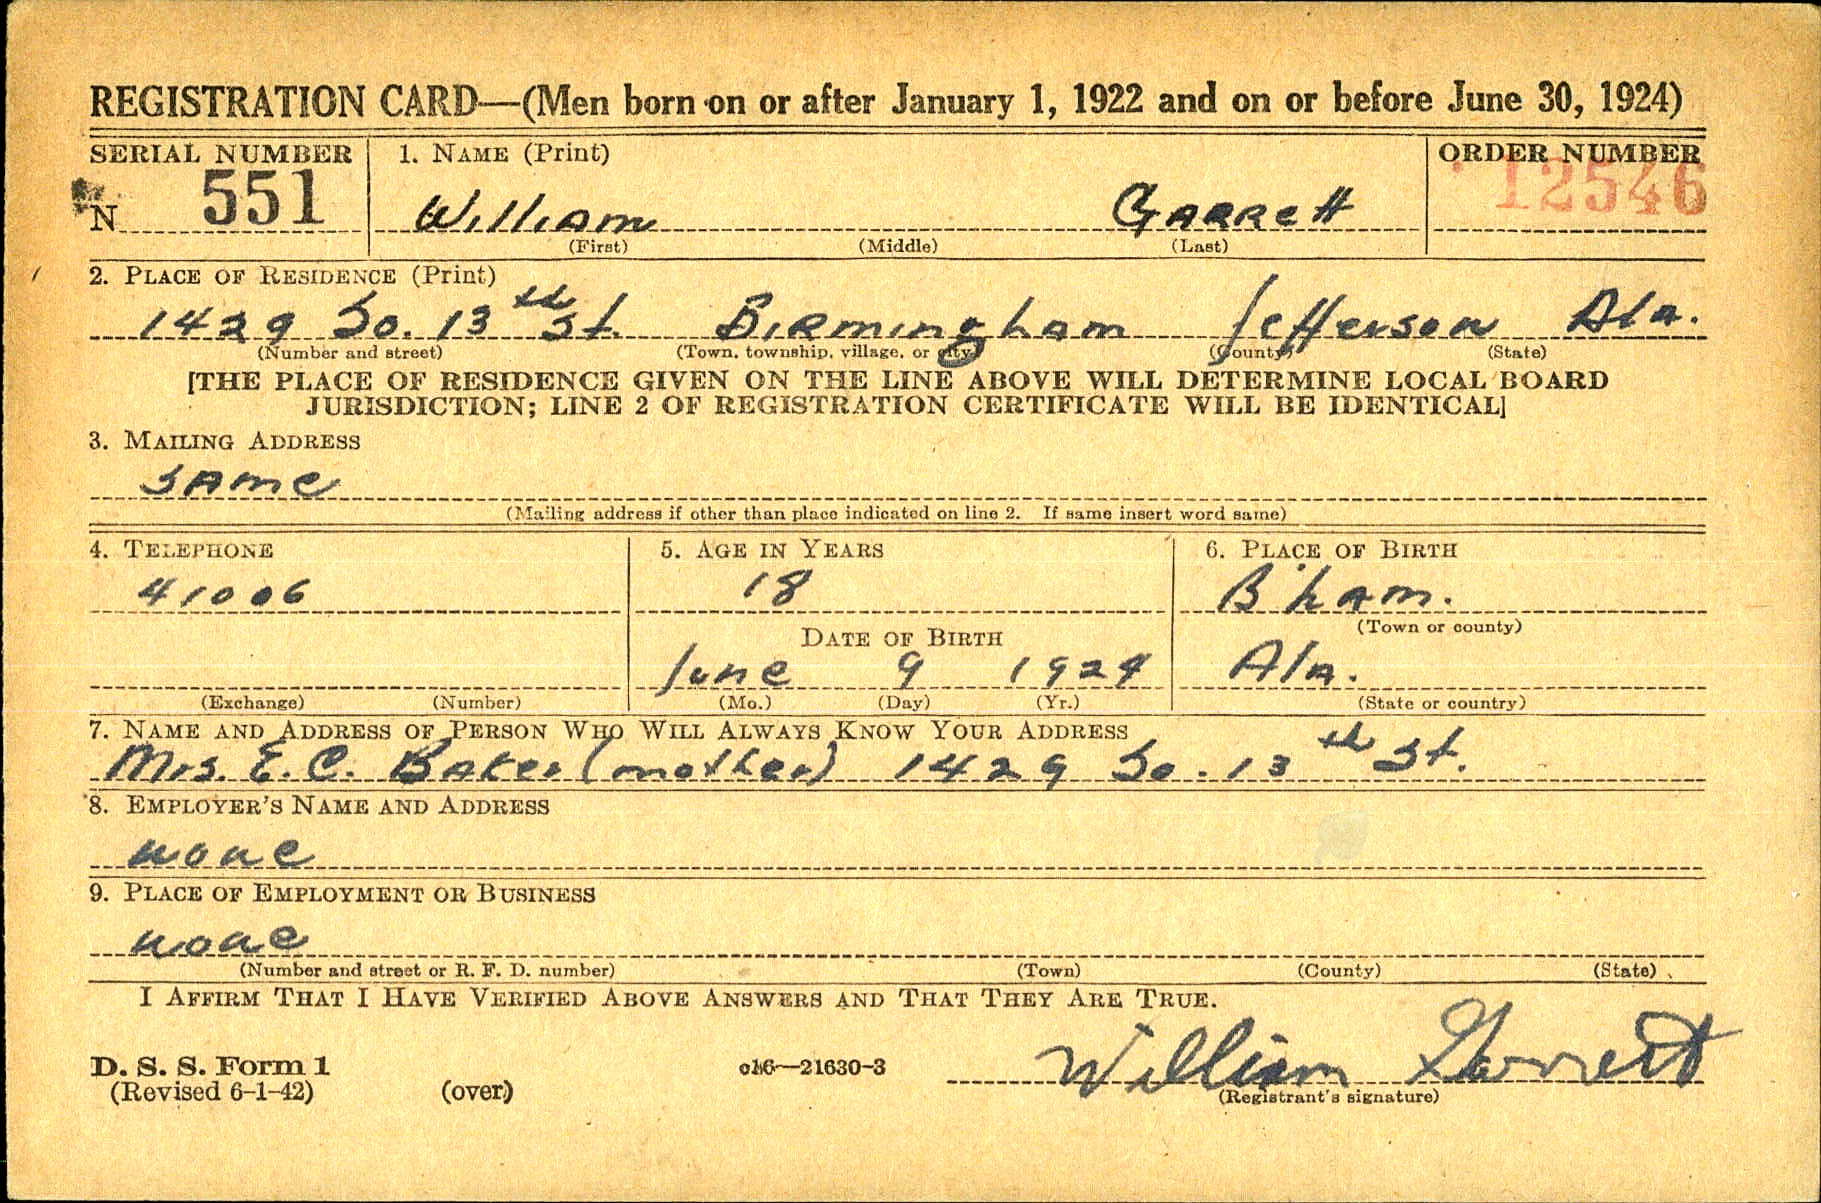 REGISTRATION CARD—(Men born on or after January 1, 1922 and on or before June 30, 1924)
SERIAL NUMBER 1. NAME (Print) ORDER NUMBER
N 551 William Garrett 12546
(First) (Middle) (Last)
2. PLACE OF RESIDENCE (Print)
1429 So. 13th St. Birmingham Jefferson Ala.
(Number and street) (Town, township, village, or city) (County) (State)
[THE PLACE OF RESIDENCE GIVEN ON THE LINE ABOVE WILL DETERMINE LOCAL BOARD
JURISDICTION; LINE 2 OF REGISTRATION CERTIFICATE WILL BE IDENTICAL]
3. MAILING ADDRESS
same
(Mailing address if other than place indicated on line 2. If same insert word same)
4. TELEPHONE 5. AGE IN YEARS 6. PLACE OF BIRTH
41006 18 B'ham.
(Town or county)
DATE OF BIRTH
June 9 1924 Ala.
(Exchange) (Number) (Mo.) (Day) (Yr.) (State or country)
7. NAME AND ADDRESS OF PERSON WHO WILL ALWAYS KNOW YOUR ADDRESS
Mrs. E. C. Baker (mother) 1429 So. 13th St.
8. EMPLOYER'S NAME AND ADDRESS
none
9. PLACE OF EMPLOYMENT OR BUSINESS
none
(Number and street or R. F. D. number) (Town) (County) (State)
I AFFIRM THAT I HAVE VERIFIED ABOVE ANSWERS AND THAT THEY ARE TRUE.
William Garrett
D. S. S. Form 1 c16—21630-3
(Revised 6-1-42) (over) (Registrant's signature)